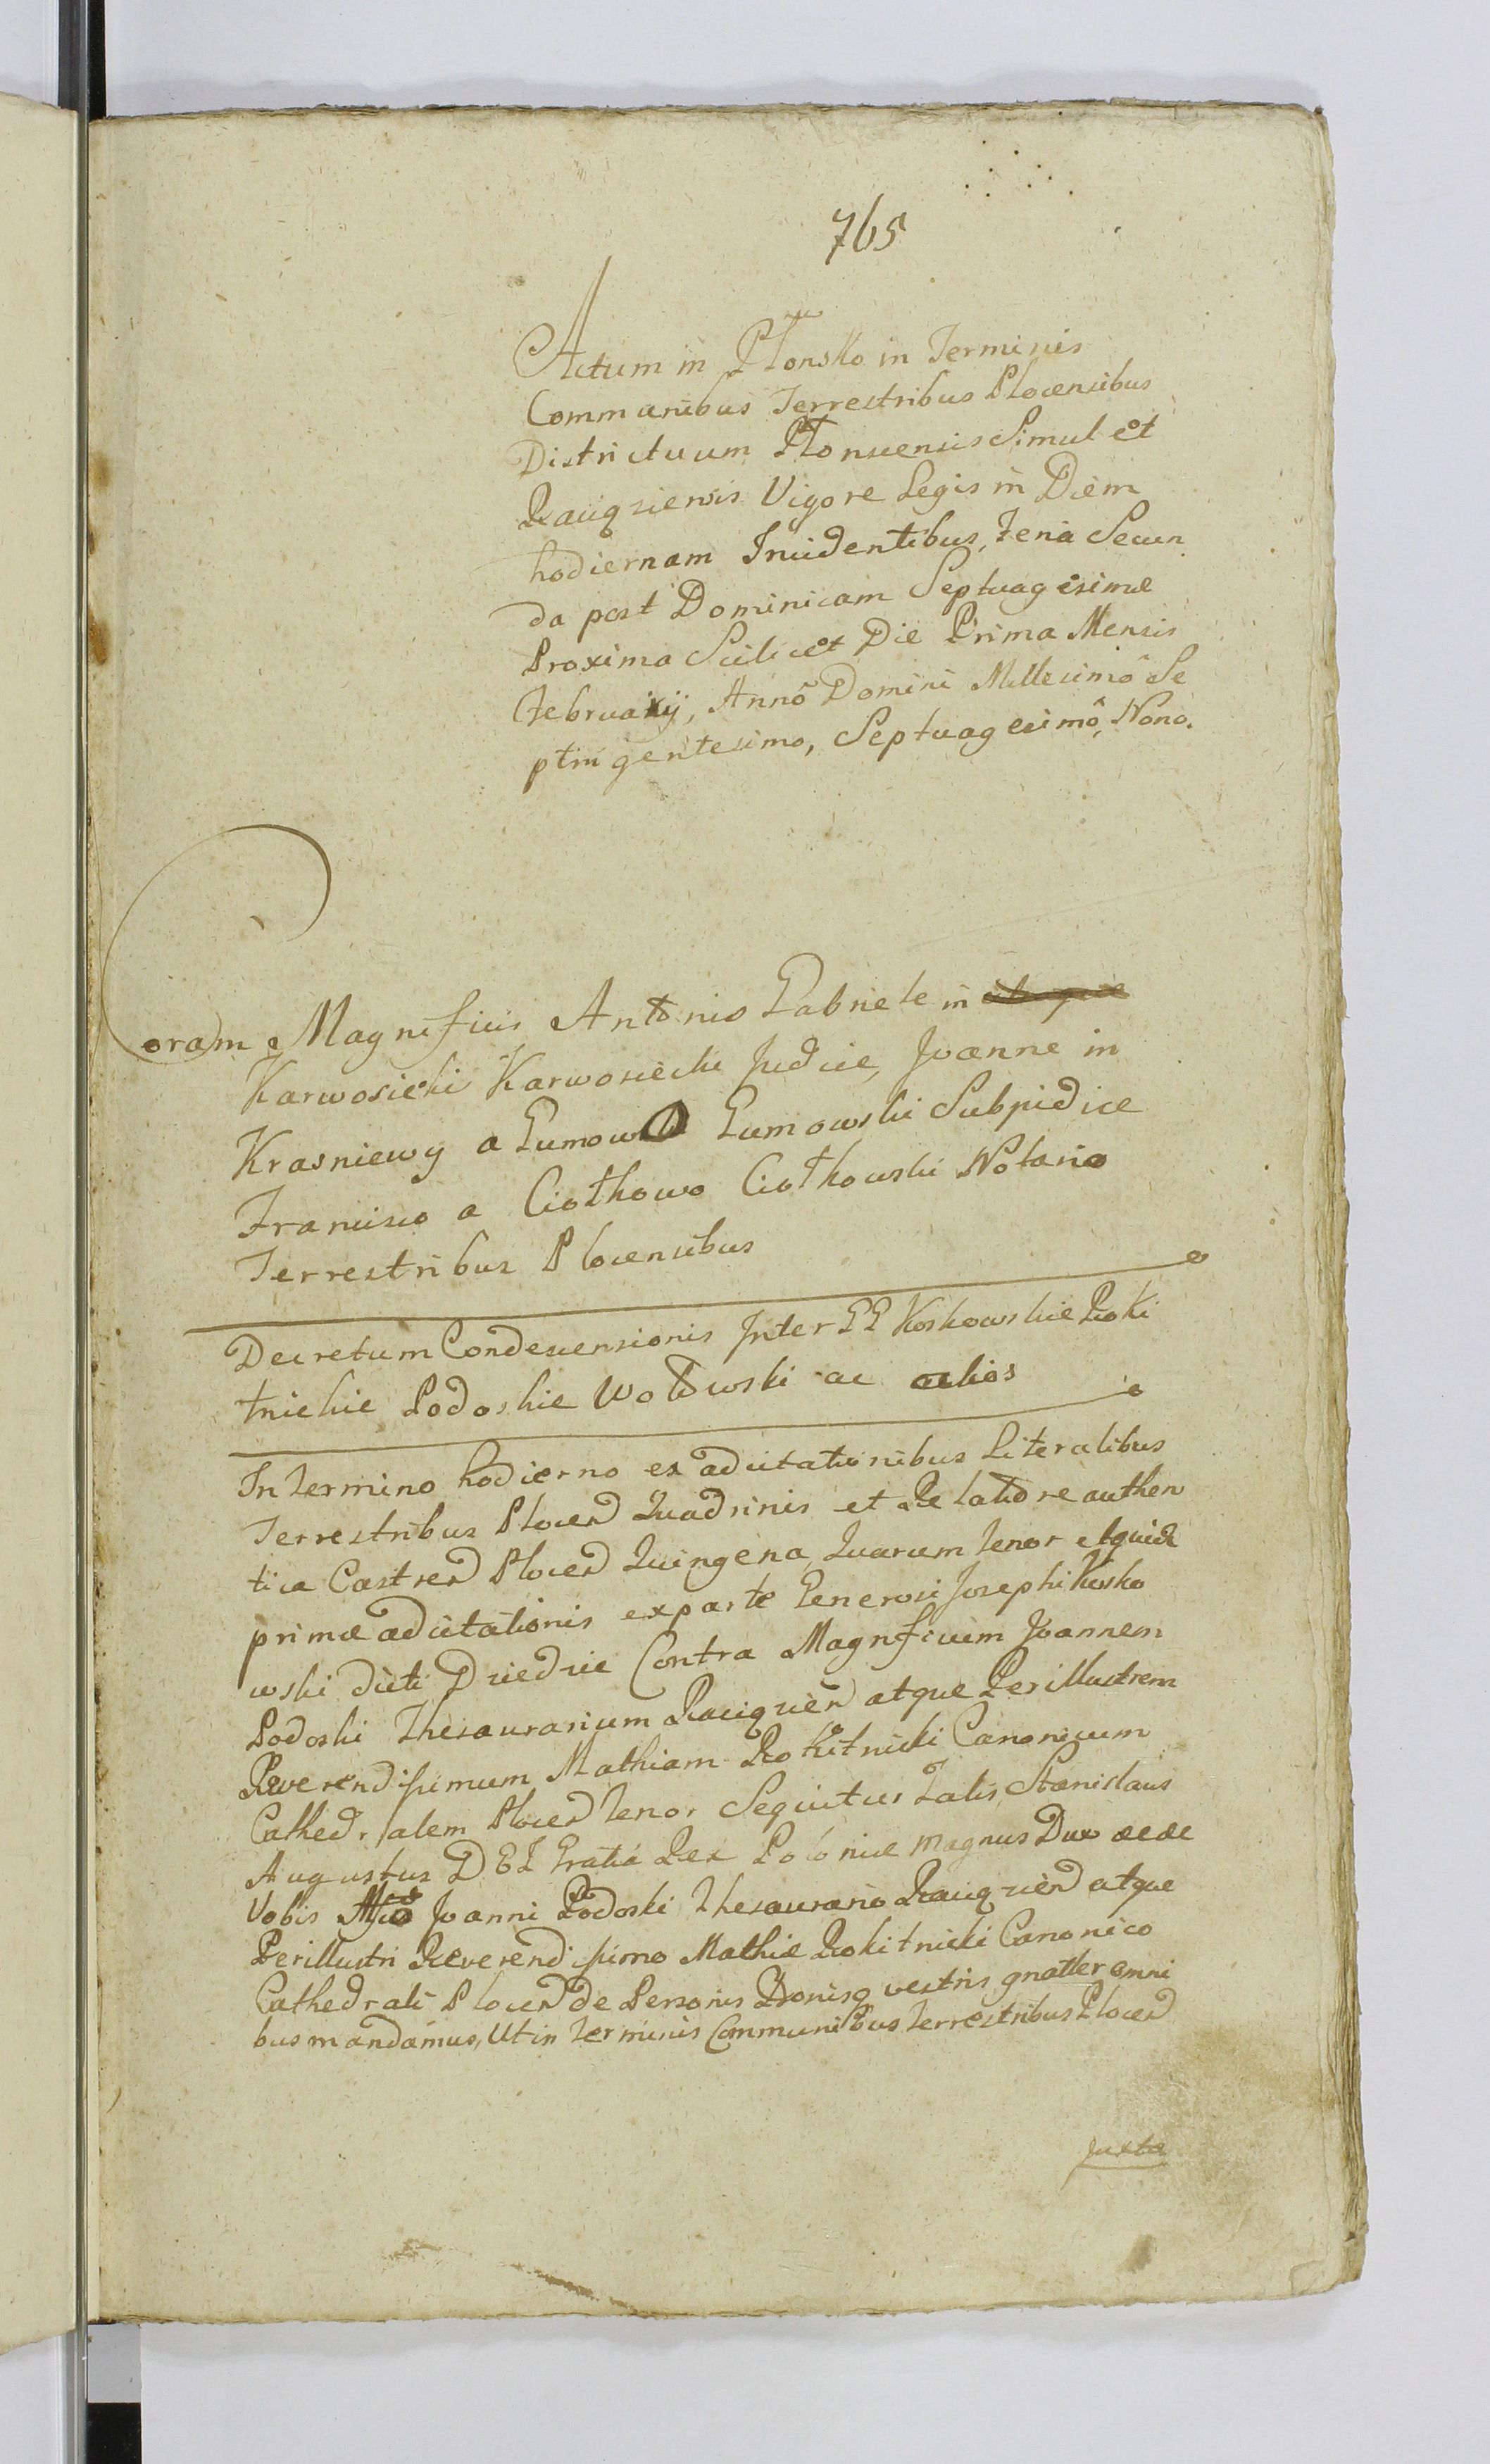 765
Actum in Płonsko in Terminis
Communibus Terrestribus Plocensibus
Districtuum Płonscensis Simul et
Raciążiensis Vigore Legis in Diem
hodiernam Incidentibus, Feria Secun
da post Dominicam Septuagesimæ
Proxima Scilicet Die Prima Mensis
February, Annô Domini Millesimô Se
ptingentesimo, Septuagesimô, Nono.
Coram Magnificis Antonio Gabriele in
Karwosieki Karwosiecki Judice, Joanne in
Krasniewy a Gumowo Gumowski Subjudice
Francisco a Ciołkowo Ciołkowski Notario
Terrestribus Plocensibus
Decretum Condescensionis Inter GG Koskowskie Roki
tnickie Podoskie Wołowski ac alios
In Termino hodierno ex adcitationibus Literalibus
Terrestribus Plocen Quadrinis et Relatore authen
tica Castren Plocen Quingena, Quarum tenor et quidē
primæ adcitationis ex parte Generosi Josephi Kosko
wski dicti Dziedzic Contra Magnificum Joannem
Podoski Thesaurarium Raciązien atque Perillustrem
Reverendissimum Mathiam Rokitnicki Canonicum
Cathedralem Plocen tenor Sequitur Talis, Stanislaus
Augustus DEI Gratia Rex Poloniæ Magnus Dux &c &c
Vobis Mfco Joanni Podoski Thesaurario Raciązien atque
Perillustri Reverendissimo Mathiæ Rokitnicki Canonico
Cathedrali Plocen de Personis Bonisq vestris gnatter omni
bus mandamus, Ut in Terminis Communibus Terrestribus Plocen
juxta